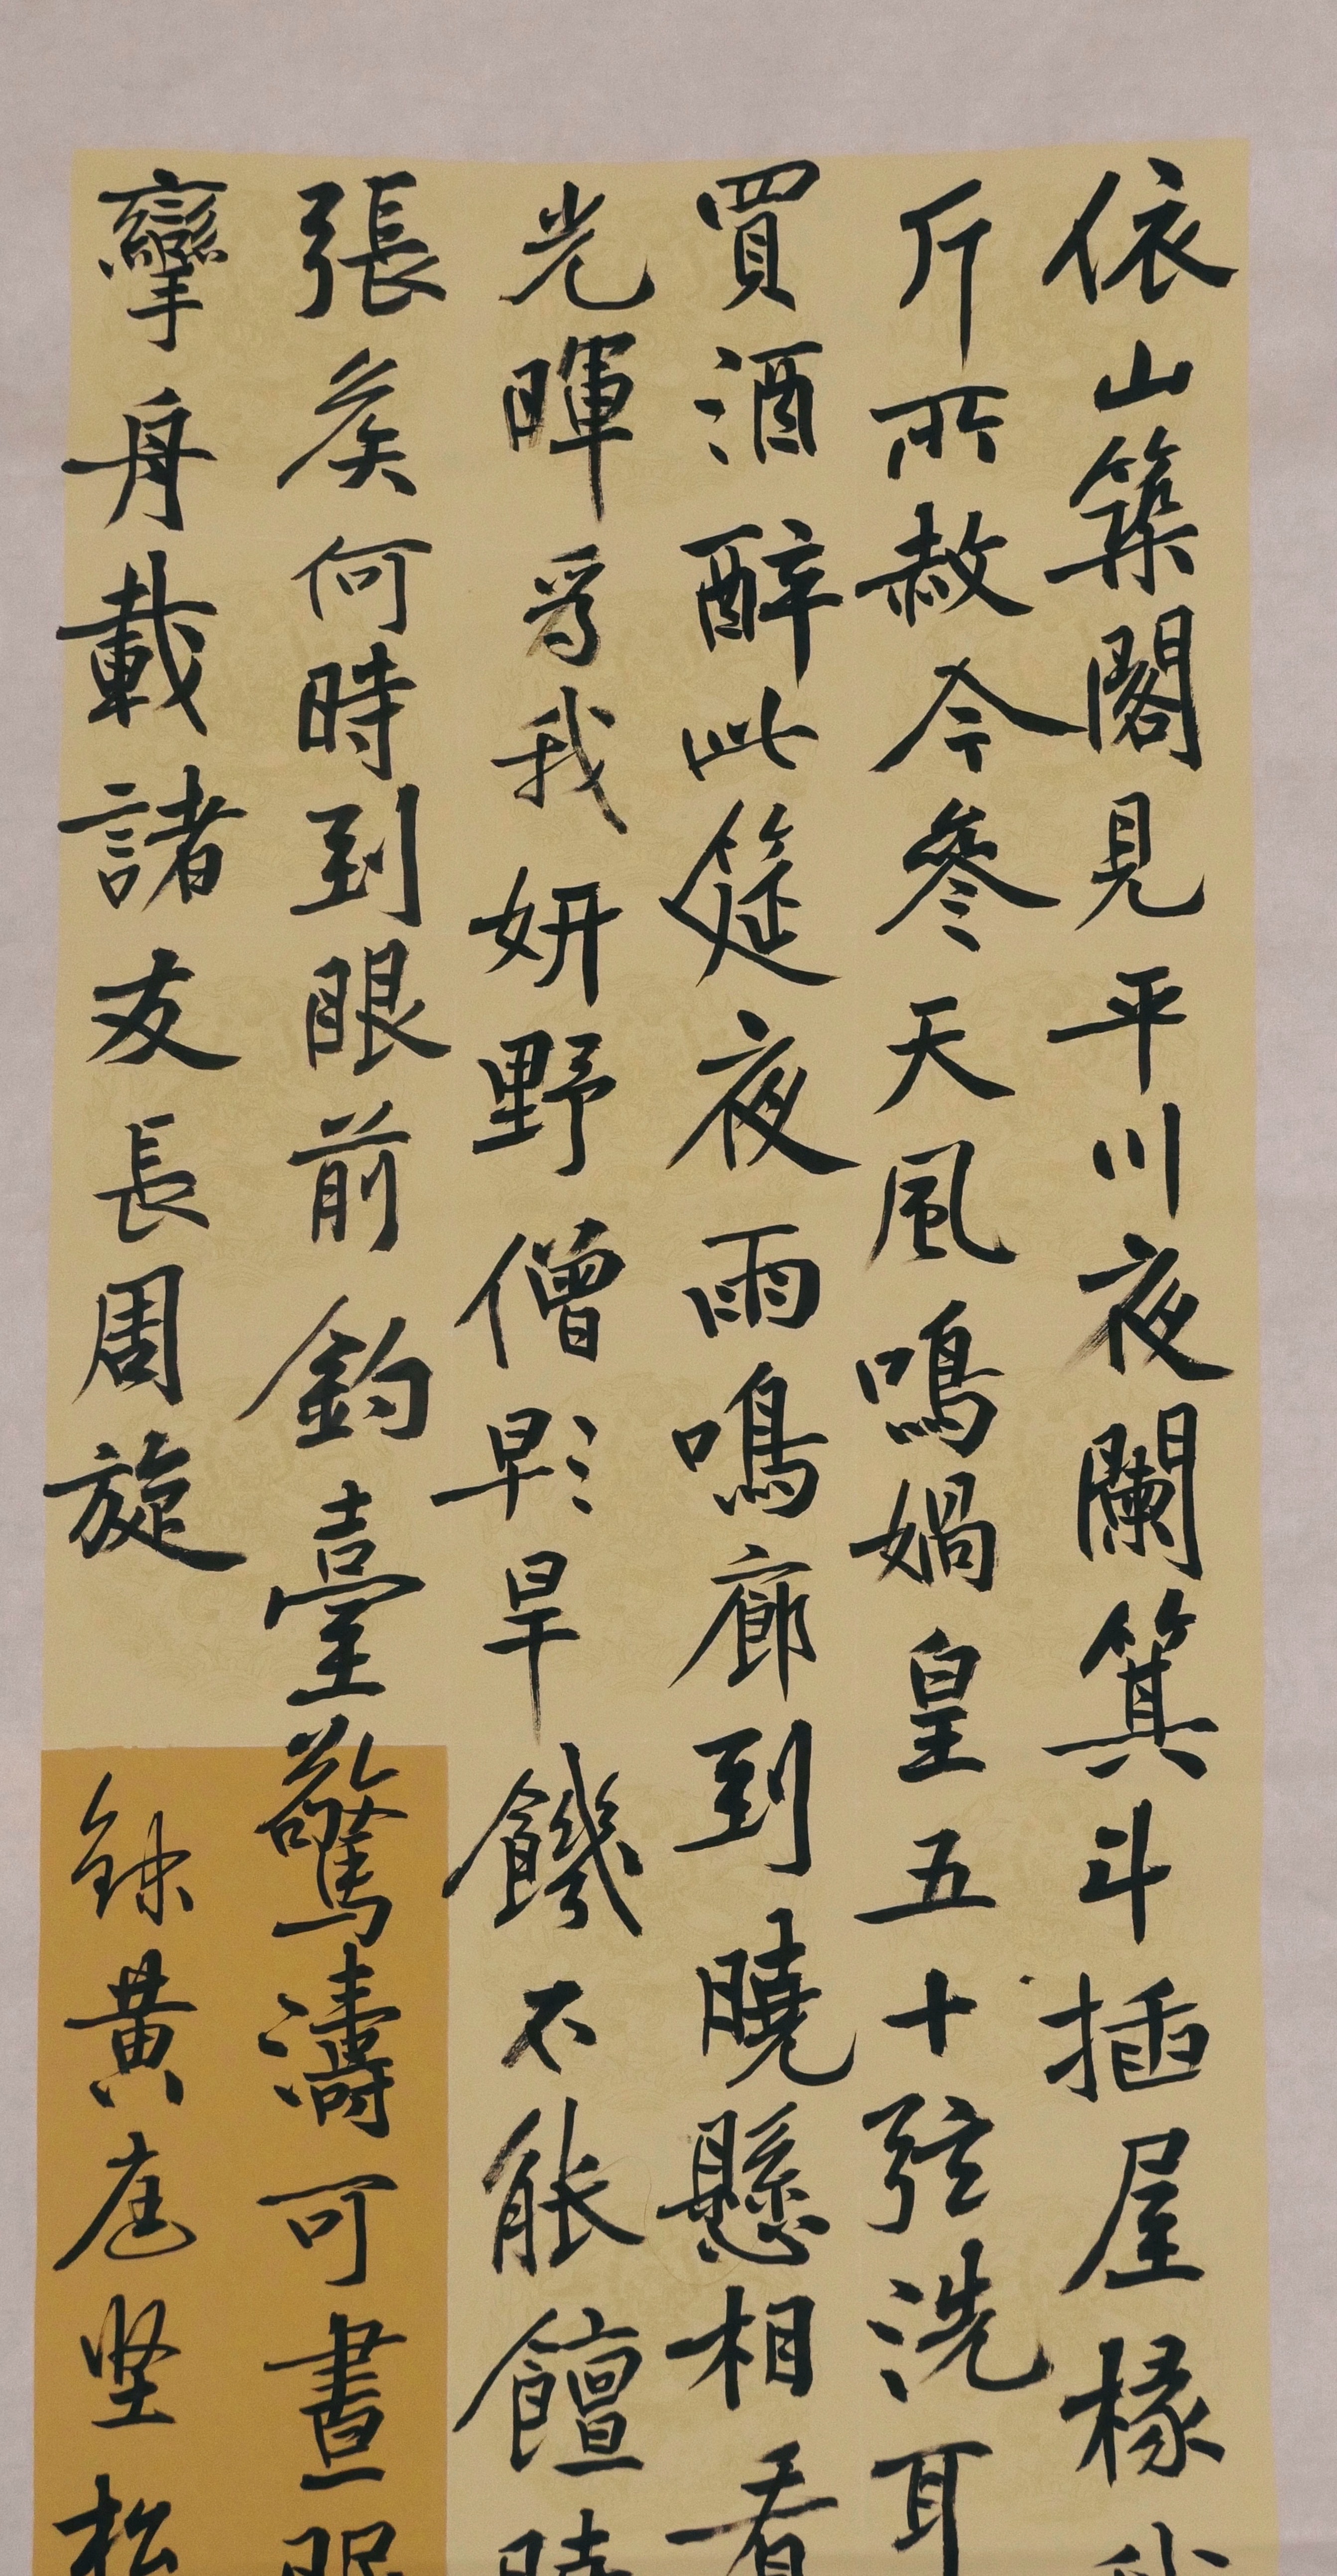 依山築閣見平川夜闌箕斗插屋椽
斤所赦今參天風鳴媧皇五十弦洗耳
買酒醉此筵夜雨鳴廊到曉懸相看
光暉爲我妍野僧早旱饑不能饘
張矦何時到眼前釣臺驚濤可晝眠
攣舟載諸友長周旋
錄黄庭坚松